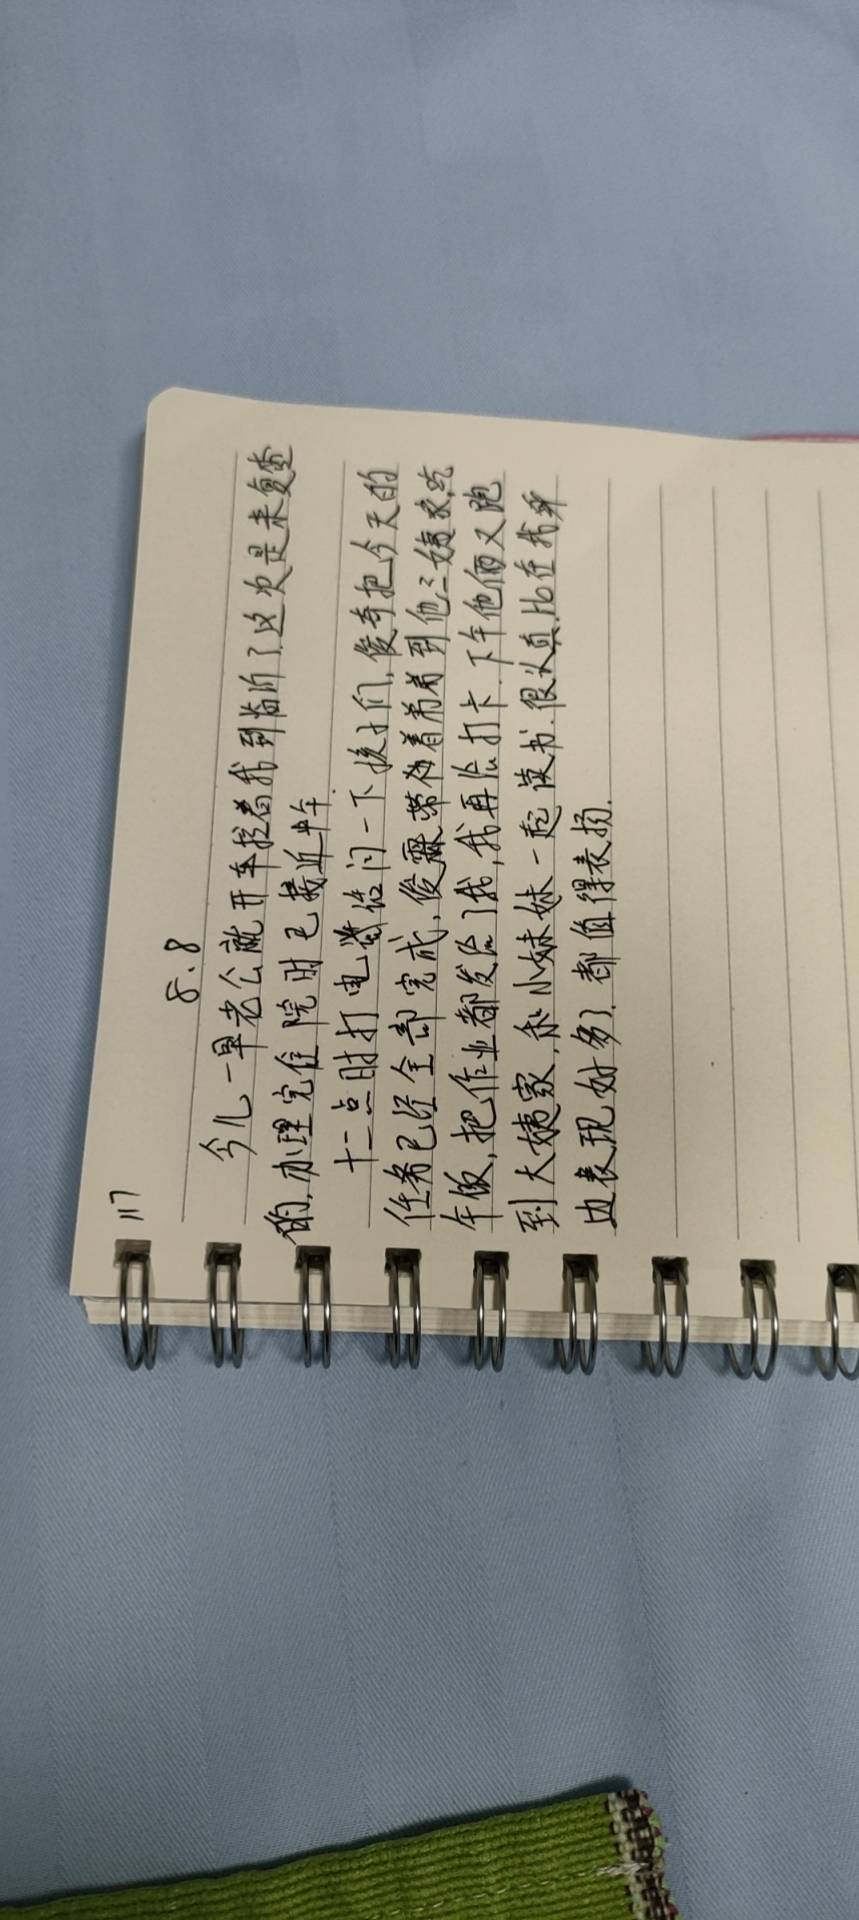 117
8.8
今儿一早老公就开车拉着我到临沂了.这次是来复查
的,办理完住院时已接近中午.
十二点时打电话问一下孩子们,俊奇把今天的
任务已经全部完成,俊霖带领着弟弟到他三姨家吃
午饭,把作业都发给了我,我再给打卡.下午他俩又跑
到大姨家,和小妹妹一起读书.很认真.比在我身
边表现好多了.都值得表扬.